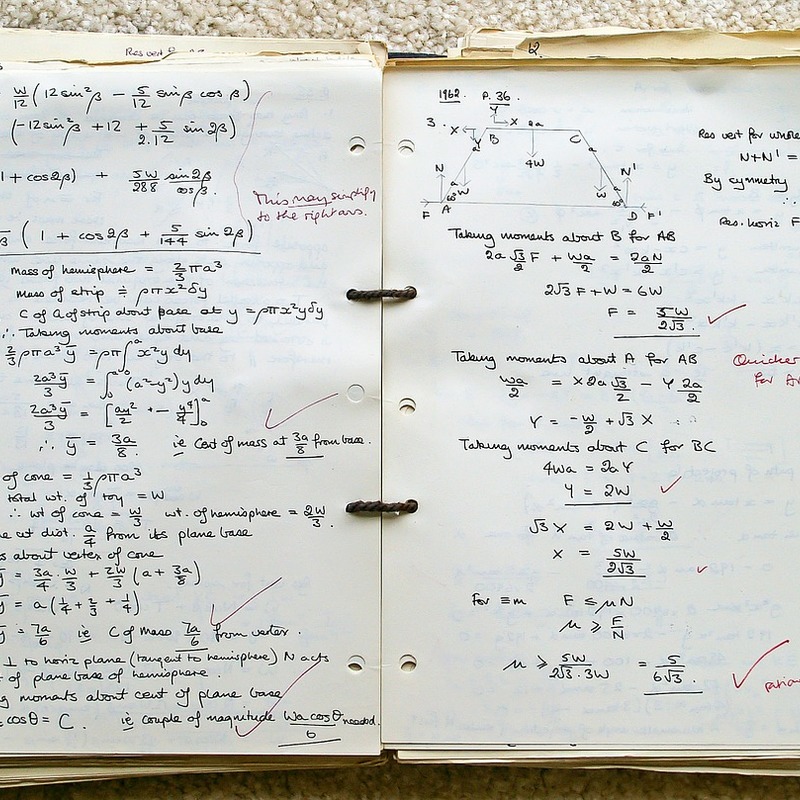 W/12 (12 sin²β − 5/12 sinβ cosβ)
(−12 sin²β + 12 + 5/2.12 sin 2β)
1 + cos 2β) + 5W/288 sin 2β/cosβ.
This may simplify
to the right ans.
(1 + cos 2β + 5/144 sin 2β)
mass of hemisphere = 2/3 πa³
mass of strip ≑ ρπx²δy
C of of strip about base at y = ρπx²yδy
∴ Taking moments about base
2/3 ρπa³ȳ = ρπ∫₀ᵃ x²y dy
2a³ȳ/3 = ∫₀ᵃ (a²−y²) y dy
2a³ȳ/3 = [ay²/2 + − y⁴/4]₀ᵃ
∴ ȳ = 3a/8. ie Cent of mass at 3a/8 from base.
of cone = 1/3 ρπa³
total wt. of toy = W
∴ wt of cone = W/3 wt. of hemisphere = 2W/3.
at dist. a/4 from its plane base
about vertex of cone
ȳ = 3a/4 . W/3 + 2W/3 (a + 3a/8)
ȳ = a(1/4 + 2/3 + 1/4)
ȳ = 7a/6 ie C of mass 7a/6 from vertex.
⊥ to horiz plane (tangent to hemisphere) N acts
of plane base of hemisphere.
moments about cent of plane base
cosθ = C. ie couple of magnitude Wa cosθ/6 needed.
12.
1962. P.36.
3. X Y X B 2a C a
Y 4W N'
N a W W a
F A 60° 60° D F'
Res vert for whole
N+N' =
By symmetry
∴
Res. horiz F
Taking moments about B for AB
2a √3/2 F + Wa/2 = 2aN/2
2√3 F + W = 6W
F = 5W/2√3.
Taking moments about A for AB
Quicker
for
Wa/2 = X 2a √3/2 − Y 2a/2
Y = −W/2 + √3 X
Taking moments about C for BC
4Wa = 2aY
Y = 2W
√3 X = 2W + W/2
X = 5W/2√3
for ≡m F ≤ μN
μ ≥ F/N
μ ≥ 5W/2√3.3W = 5/6√3.